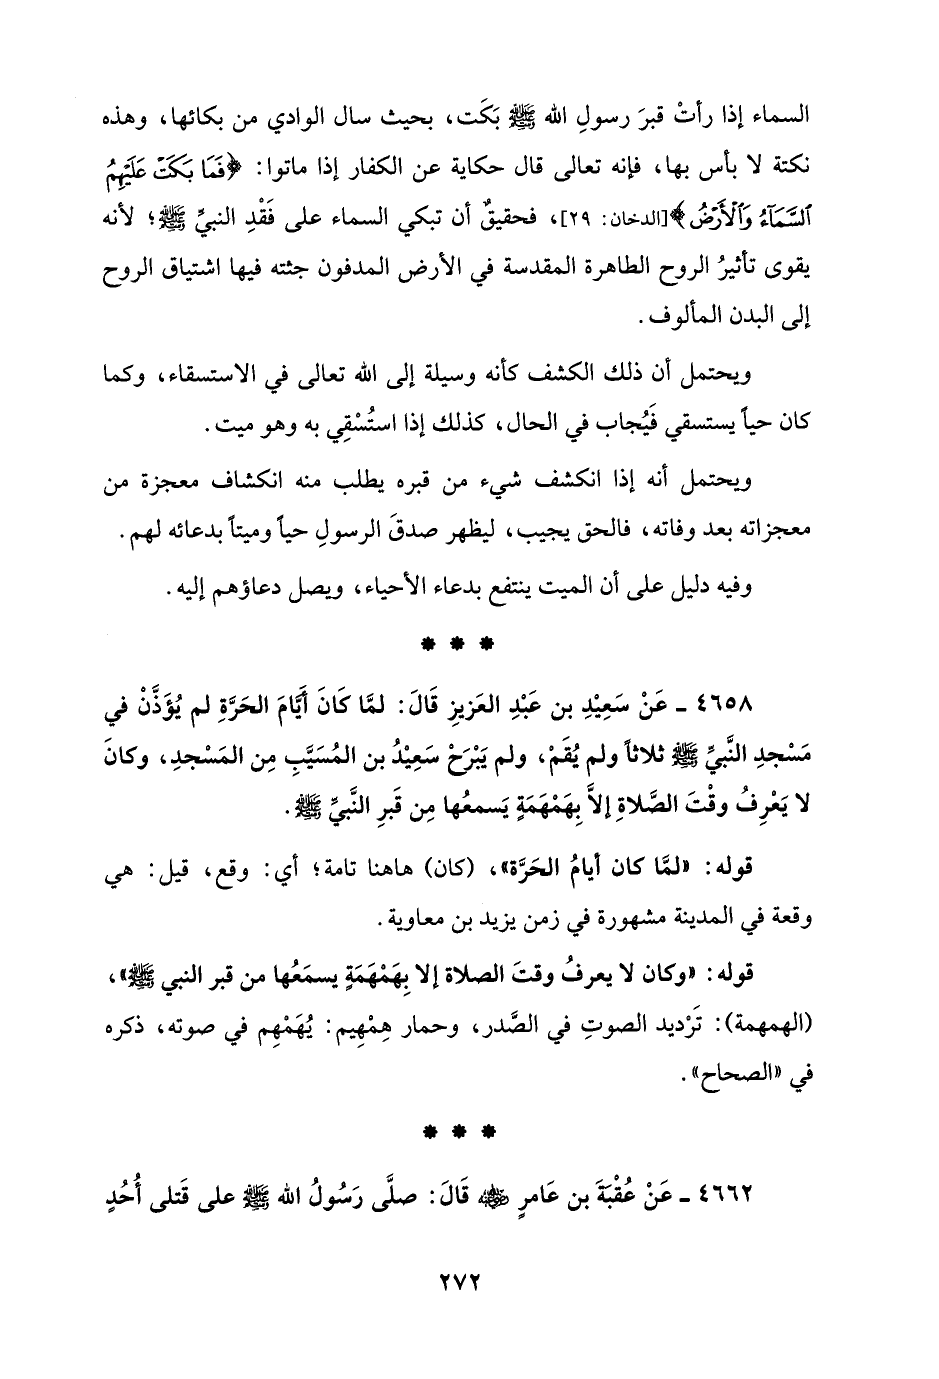 السماء إذا رأتْ قبرَ رسولِ الله ﷺ بَكَت، بحيث سال الوادي من بكائها، وهذه
نكتة لا بأس بها، فإنه تعالى قال حكاية عن الكفار إذا ماتوا: ﴿فَمَا بَكَتْ عَلَيْهِمُ
ٱلسَّمَآءُ وَٱلْأَرْضُ﴾[الدخان: ٢٩]، فحقيقٌ أن تبكي السماء على فَقْدِ النبيِّ ﷺ؛ لأنه
يقوى تأثيرُ الروح الطاهرة المقدسة في الأرض المدفون جثته فيها اشتياق الروح
إلى البدن المألوف.
ويحتمل أن ذلك الكشف كأنه وسيلة إلى الله تعالى في الاستسقاء، وكما
كان حياً يستسقي فَيُجاب في الحال، كذلك إذا استُسْقِي به وهو ميت.
ويحتمل أنه إذا انكشف شيء من قبره يطلب منه انكشاف معجزة من
معجزاته بعد وفاته، فالحق يجيب، ليظهر صدقَ الرسولِ حياً وميتاً بدعائه لهم.
وفيه دليل على أن الميت ينتفع بدعاء الأحياء، ويصل دعاؤهم إليه.
* * *
٤٦٥٨ ـ عَنْ سَعِيْدِ بن عَبْدِ العَزيزِ قَالَ: لمَّا كَانَ أيَّامَ الحَرَّةِ لم يُؤَذَّنْ في
مَسْجدِ النَّبيِّ ﷺ ثلاثاً ولم يُقَمْ، ولم يَبْرَحْ سَعِيْدُ بن المُسَيَّبِ مِن المَسْجدِ، وكانَ
لا يَعْرِفُ وقْتَ الصَّلاةِ إلاَّ بِهَمْهَمَةٍ يَسمعُها مِن قَبرِ النَّبيِّ ﷺ.
قوله: «لمَّا كان أيامُ الحَرَّة»، (كان) هاهنا تامة؛ أي: وقع، قيل: هي
وقعة في المدينة مشهورة في زمن يزيد بن معاوية.
قوله: «وكان لا يعرفُ وقتَ الصلاة إلا بِهَمْهَمَةٍ يسمَعُها من قبر النبي ﷺ»،
(الهمهمة): تَرْديد الصوتِ في الصَّدر، وحمار هِمْهِيم: يُهَمْهِم في صوته، ذكره
في «الصحاح».
* * *
٤٦٦٢ ـ عَنْ عُقْبَةَ بن عَامرٍ ﷺ قَالَ: صلَّى رَسُولُ الله ﷺ على قَتلى أُحُدٍ
٢٧٢